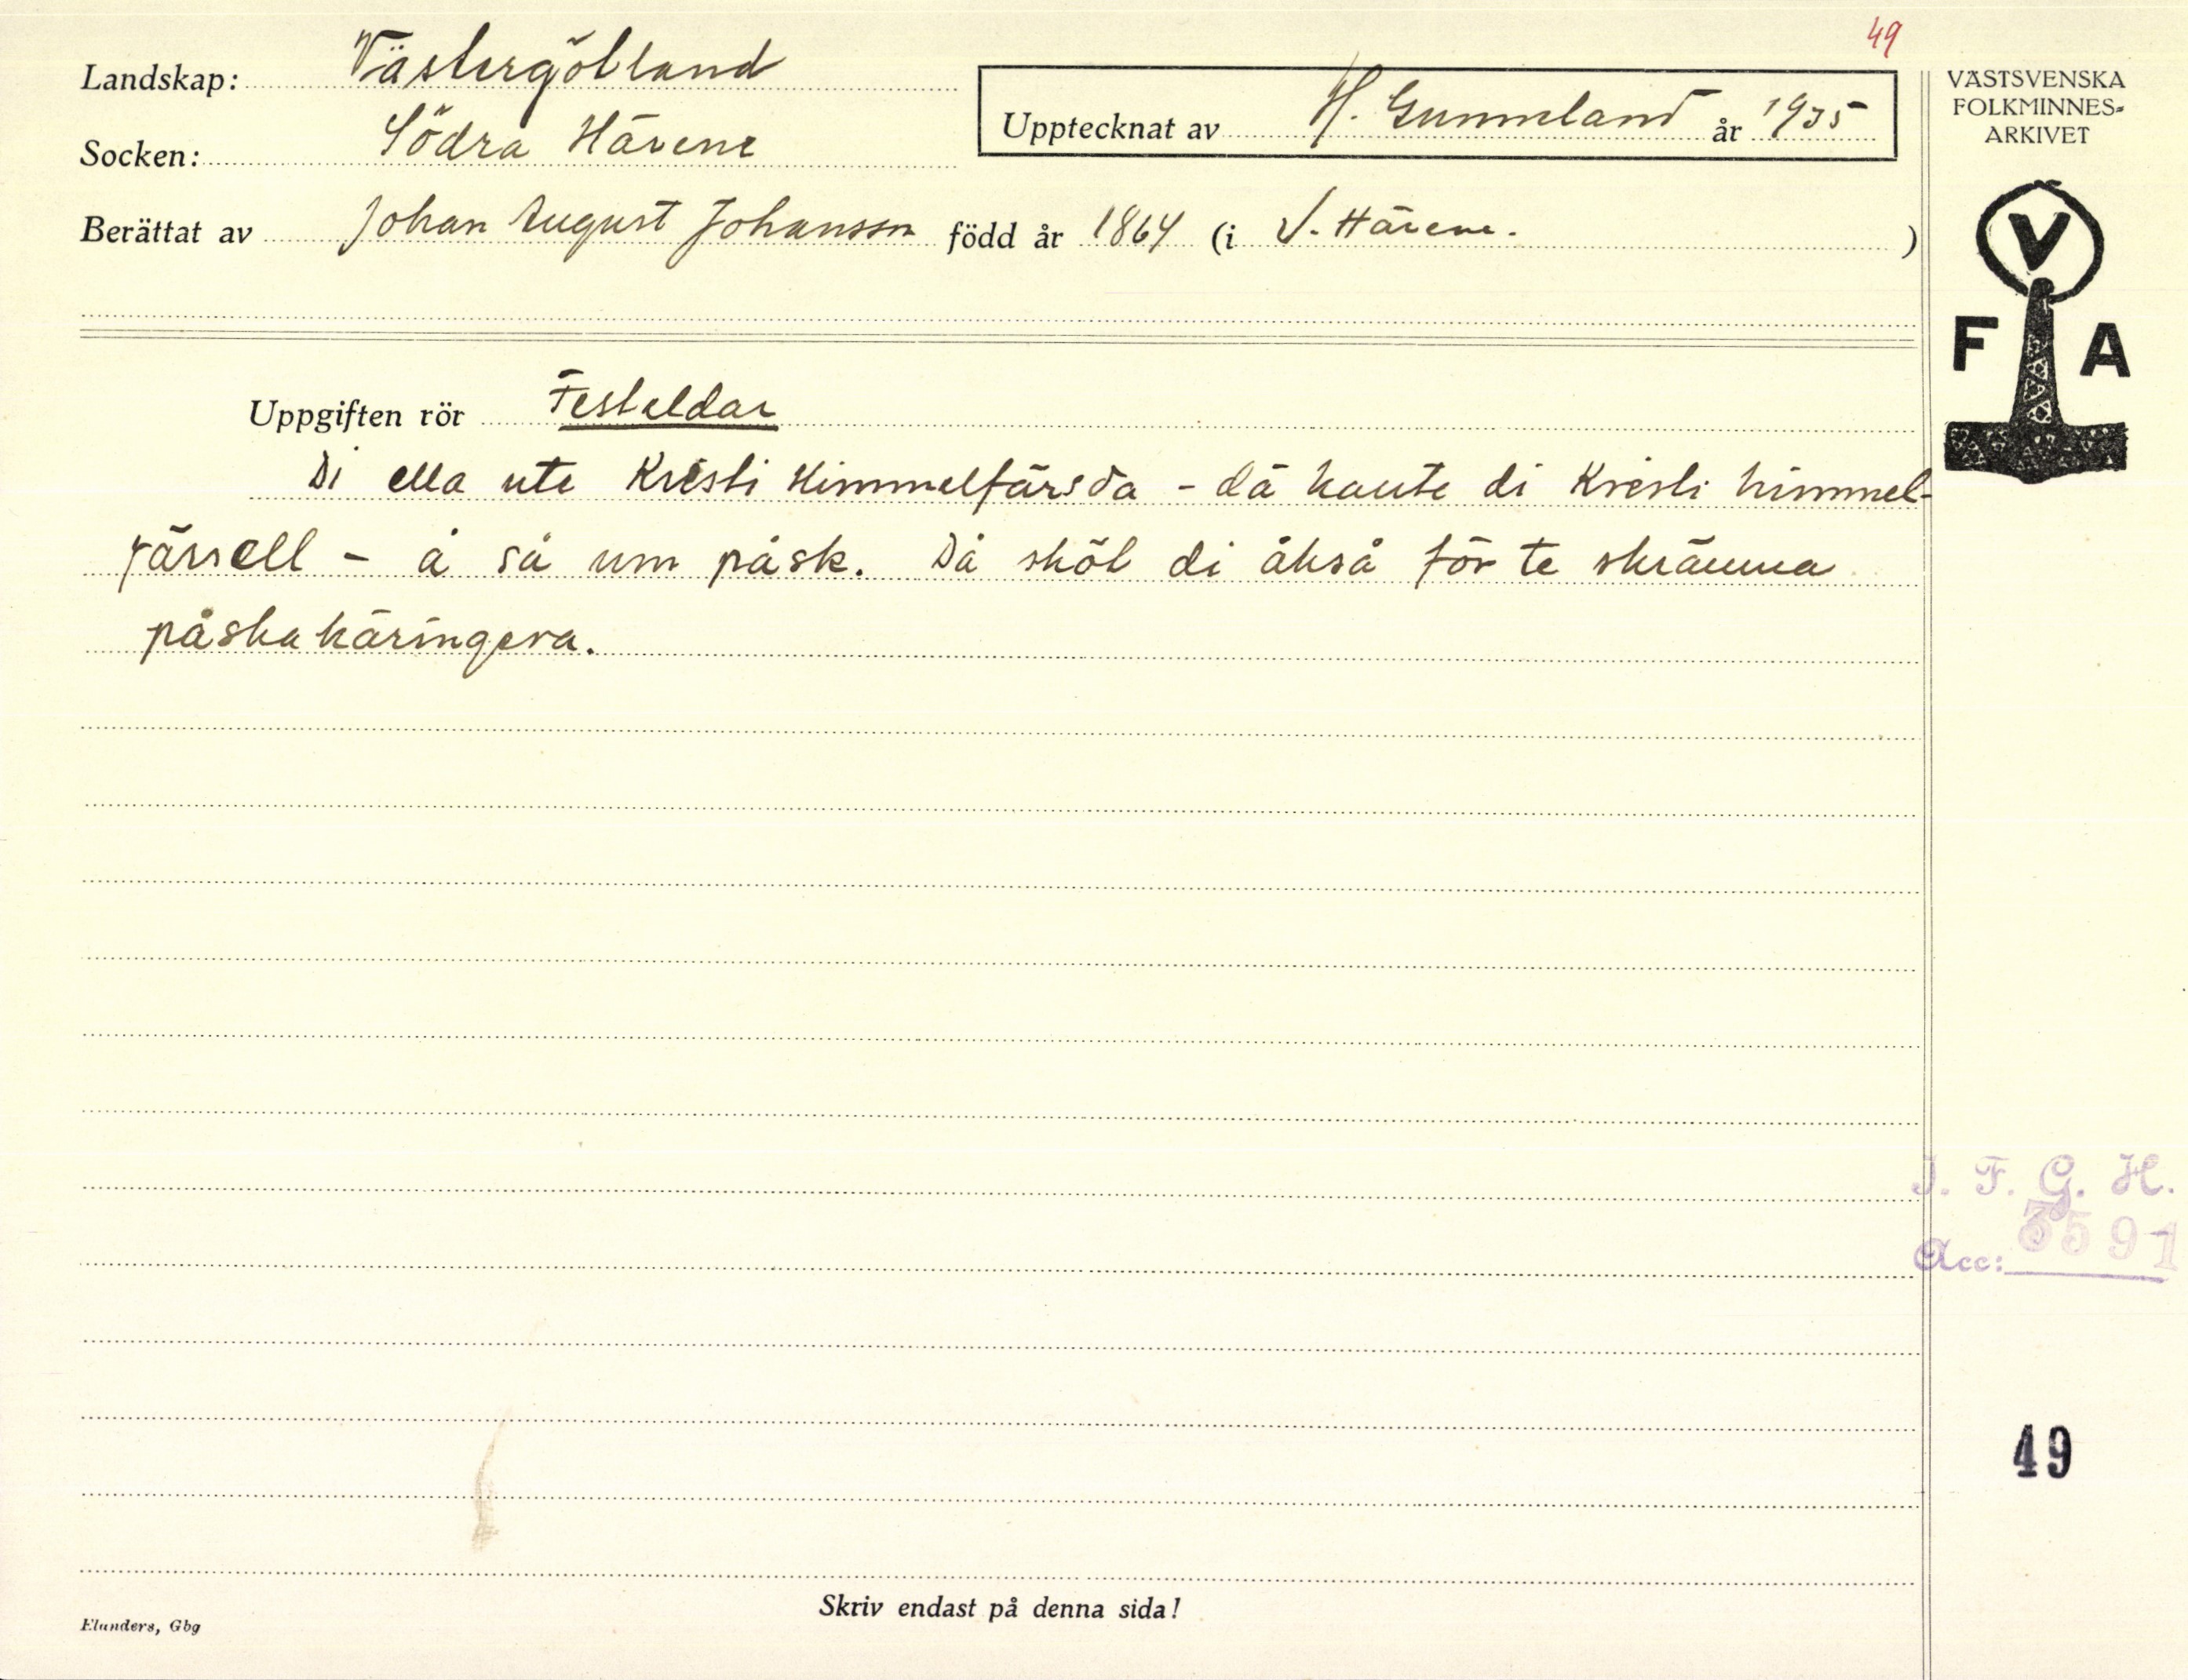 49
Landskap: Västergötland
Socken: Södra Härene
Upptecknat av H. Gunneland år 1935
Berättat av Johan August Johansson född år 1864 (i S. Härene. )
VÄSTSVENSKA
FOLKMINNES-
ARKIVET
V
F A
Uppgiften rör Festeldar
Di ella ute Kristi Himmelfärsda - dä kaute di Kristi himmel-
färsell - å så um påsk. Då sköt di åkså för te skrämma
påskakäringera.
I. F. G. H.
Acc: 3591
49
Skriv endast på denna sida!
Elanders, Gbg